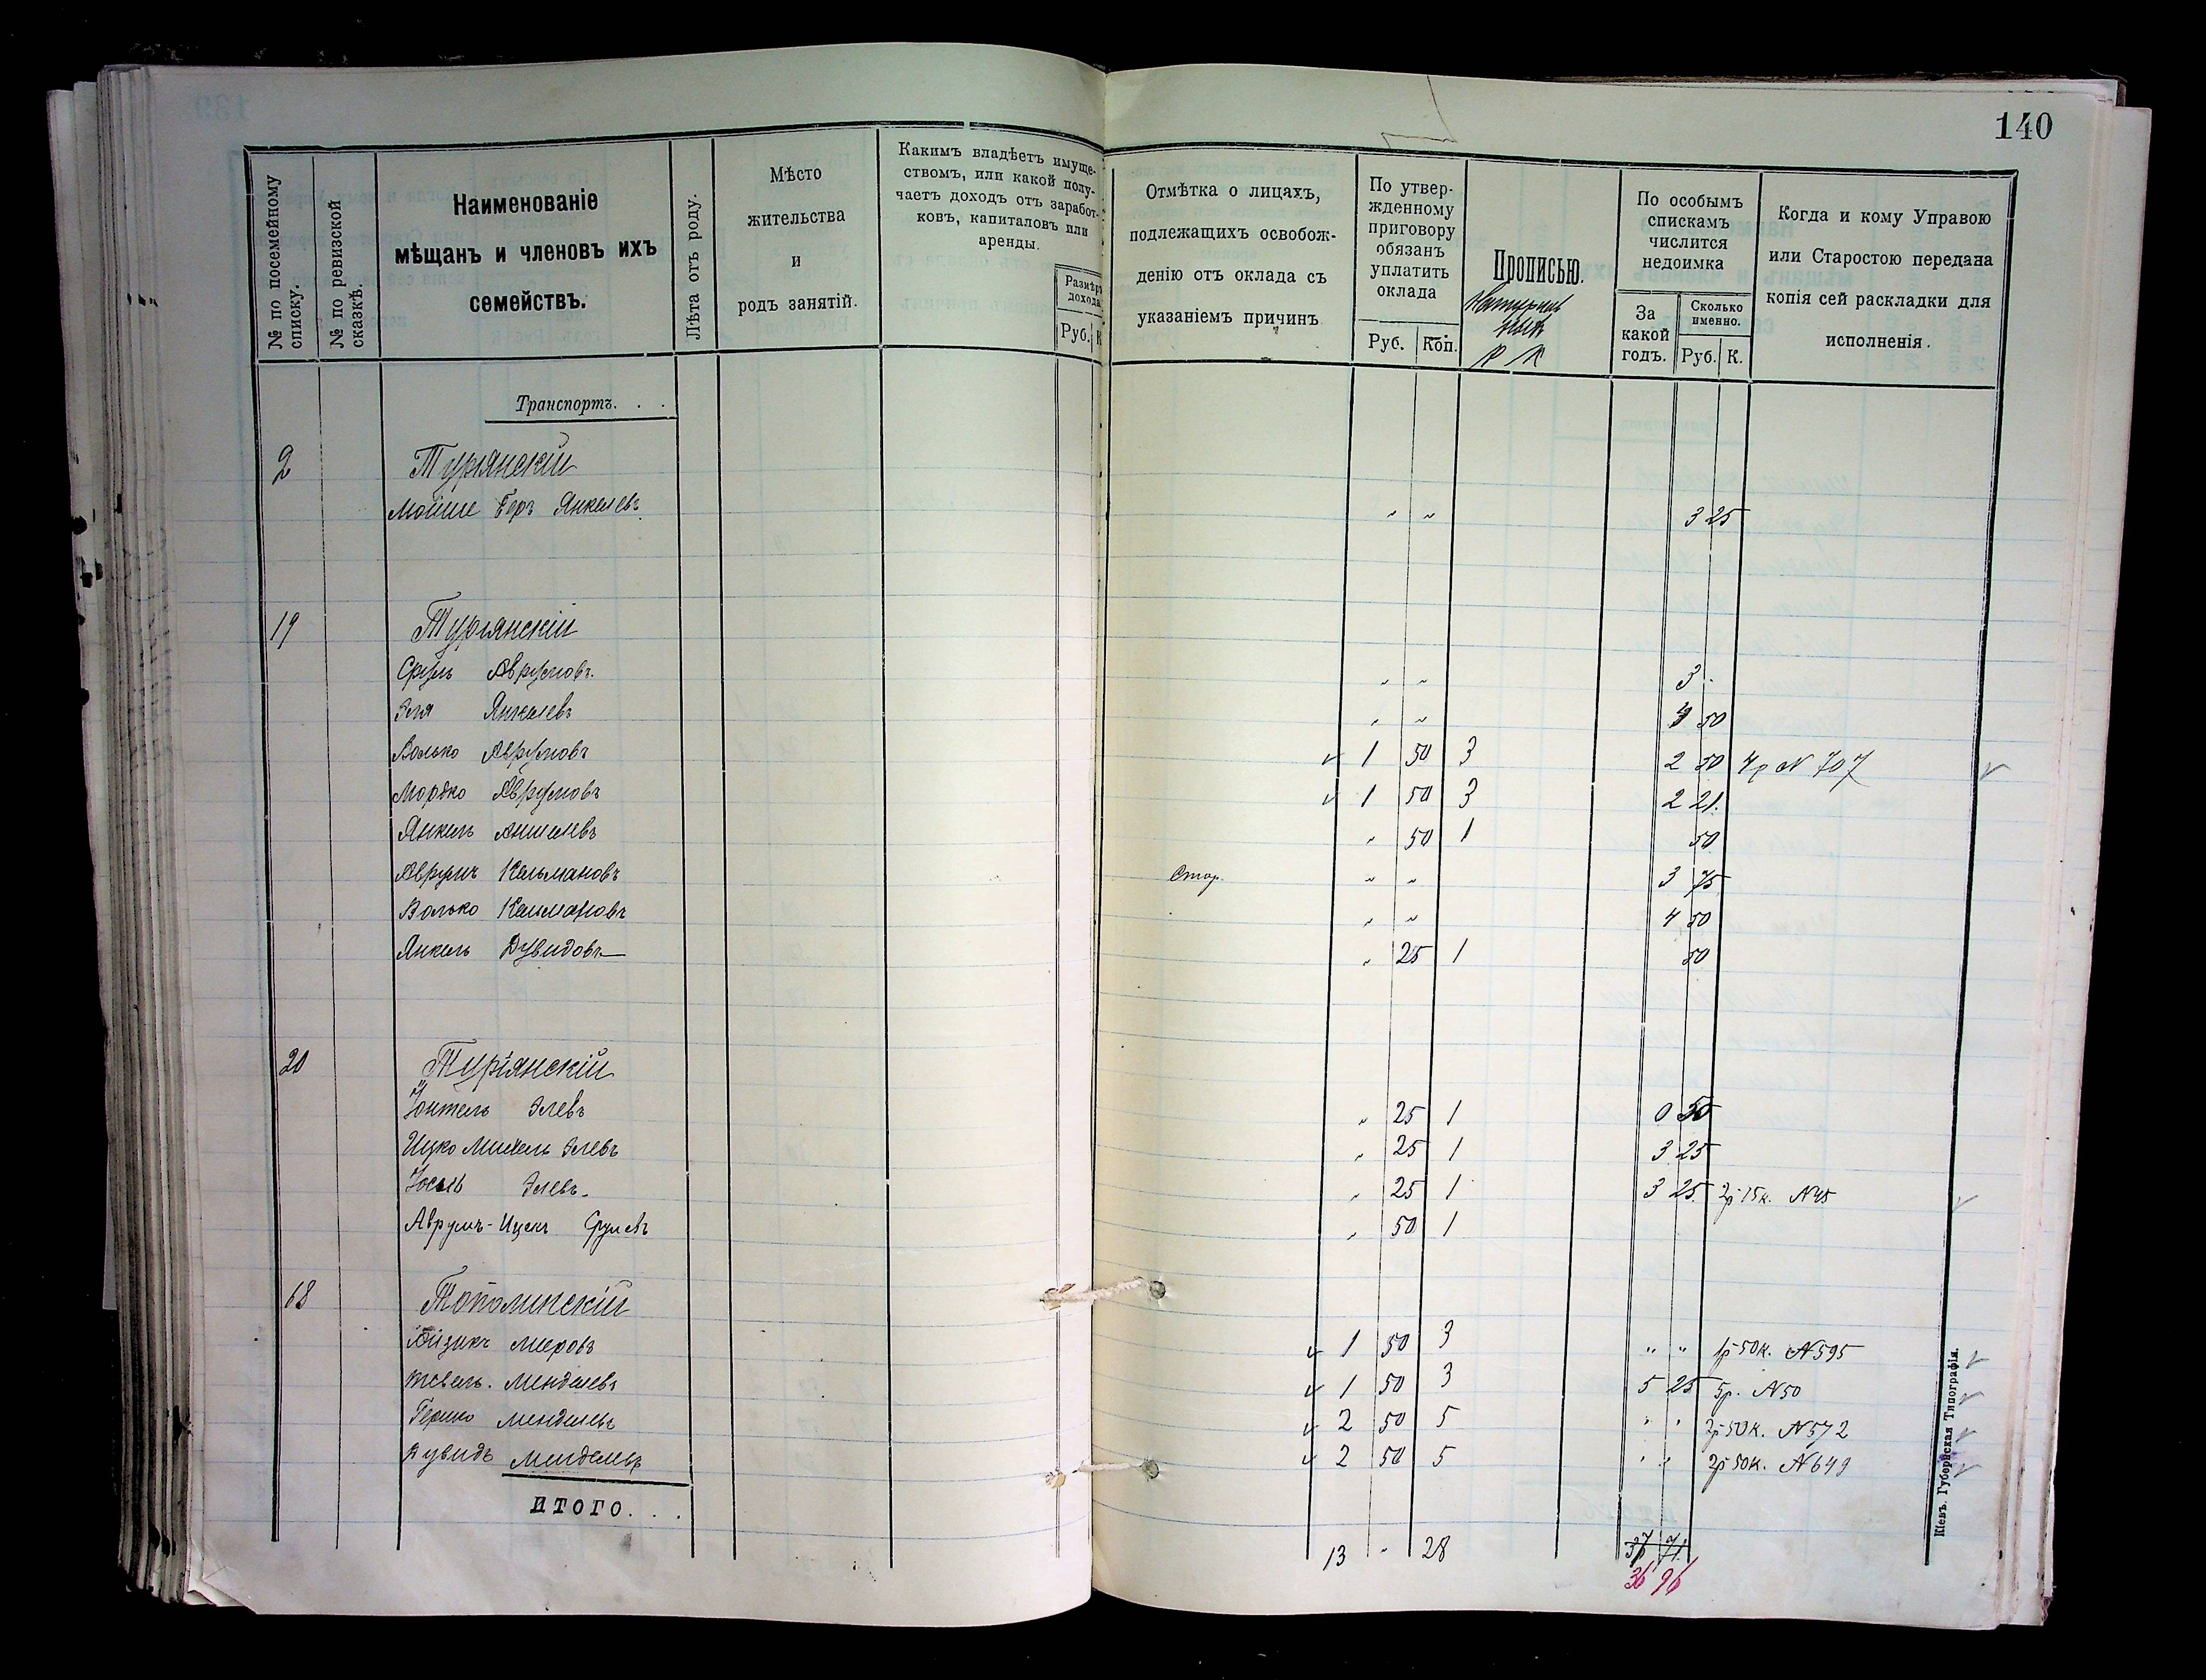 140
№ по посемейному списку.
№ по ревизской сказкѣ.
Наименованіе
мѣщанъ и членовъ ихъ
семействъ.
Лѣта отъ роду.
Мѣсто
жительства
и
родъ занятій.
Какимъ владѣетъ имуще-
ствомъ, или какой полу-
чаетъ доходъ отъ заработ-
ковъ, капиталовъ или
аренды.
Размѣръ
дохода
Руб. К
Отмѣтка о лицахъ,
подлежащихъ освобож-
денію отъ оклада съ
указаніемъ причинъ
По утвер-
жденному
приговору
обязанъ
уплатить
оклада
Руб. Коп.
Прописью.
Р К
По особымъ
спискамъ
числится
недоимка
За
какой
годъ.
Сколько
именно.
Руб. К.
Когда и кому Управою
или Старостою передана
копія сей раскладки для
исполненія.
Транспортъ. . .
2 Турянскій
Мойше Беръ Янкелевъ " " 3 25
19 Турянскій
Сруль Аврумовъ. " " 3 -
Эля Янкелевъ " " 4 50
Волько Аврумовъ v 1 50 3 2 50 4р N 707 v
Мордко Аврумовъ v 1 50 3 2 21.
Янкель Аншелевъ " 50 1 50
Аврумъ Кельмановъ Стар. " " 3 75
Волько Кельмановъ " " 4 50
Янкель Дувидовъ " 25 1 50
20 Турянскій
Зонтель Элевъ " 25 1 0 50
Ицко Михель Элевъ " 25 1 3 25
Іосель Элевъ. " 25 1 3 25 2р 15к. N 45 v
Аврумъ-Ицекъ Срулевъ " 50 1
68 Тополинскій
Айзикъ Мееровъ v 1 50 3 " " 1р 50к. N 595 v
Тевель. Менделевъ v 1 50 3 5 25 5р. N 50 v
Гершко Менделевъ v 2 50 5 " " 2р 50к. N 572 v
Дувидъ Менделевъ v 2 50 5 " " 2р 50к. N 649 v
ИТОГО. . .
13 " 28 37 71
36 96
Кіевъ. Губернская Типографія.